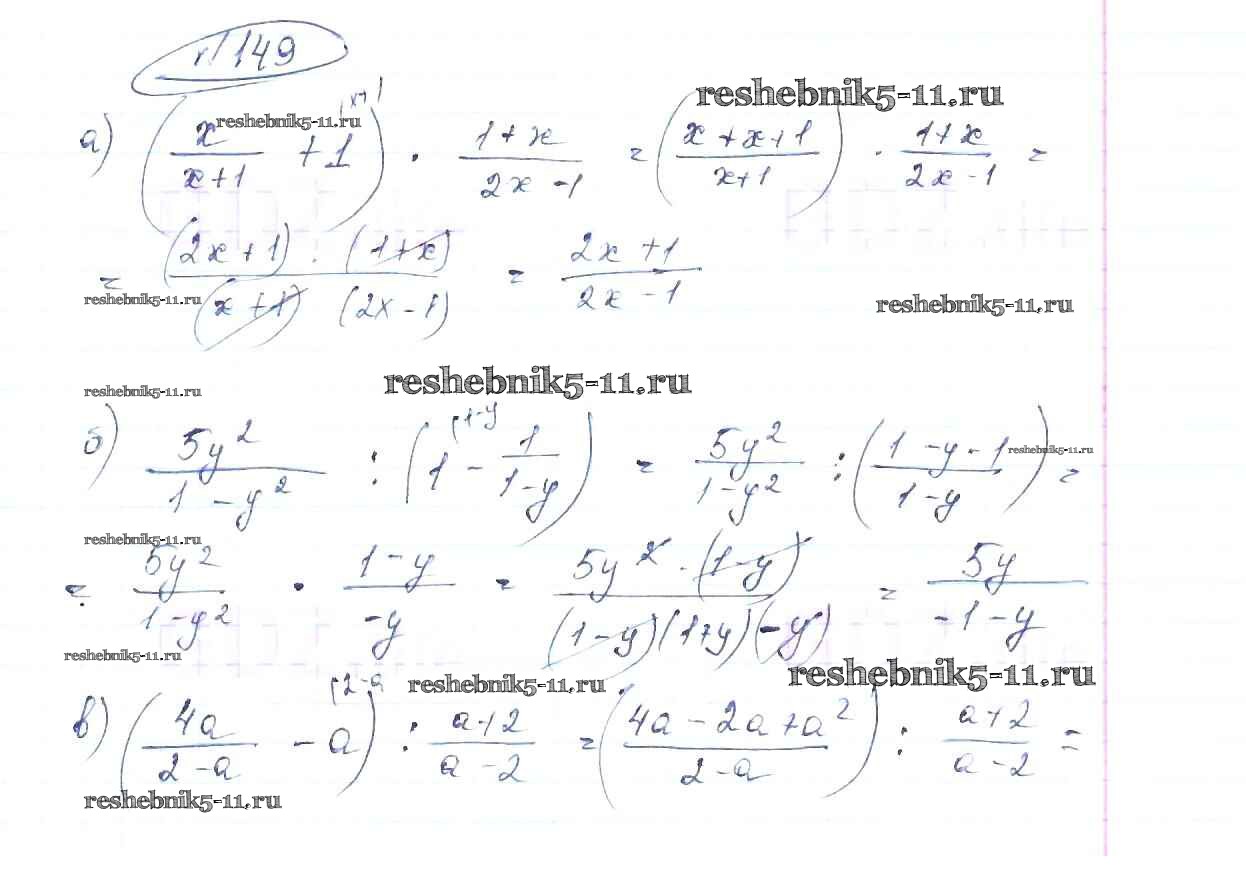 №149
reshebnik5-11.ru
а) (x/(x+1) + 1) · (1+x)/(2x-1) = ((x+x+1)/(x+1)) · (1+x)/(2x-1) =
reshebnik5-11.ru
= ((2x+1) · (1+x))/((x+1) (2x-1)) = (2x+1)/(2x-1)
reshebnik5-11.ru
reshebnik5-11.ru
reshebnik5-11.ru
reshebnik5-11.ru
б) 5y²/(1-y²) : (1 - 1/(1-y)) = 5y²/(1-y²) : ((1-y-1)/(1-y)) =
reshebnik5-11.ru
reshebnik5-11.ru
= 5y²/(1-y²) · (1-y)/(-y) = (5y² · (1-y))/((1-y)(1+y)(-y)) = 5y/(-1-y)
reshebnik5-11.ru
reshebnik5-11.ru
reshebnik5-11.ru
в) (4a/(2-a) - a) : (a+2)/(a-2) = ((4a-2a+a²)/(2-a)) : (a+2)/(a-2) =
reshebnik5-11.ru